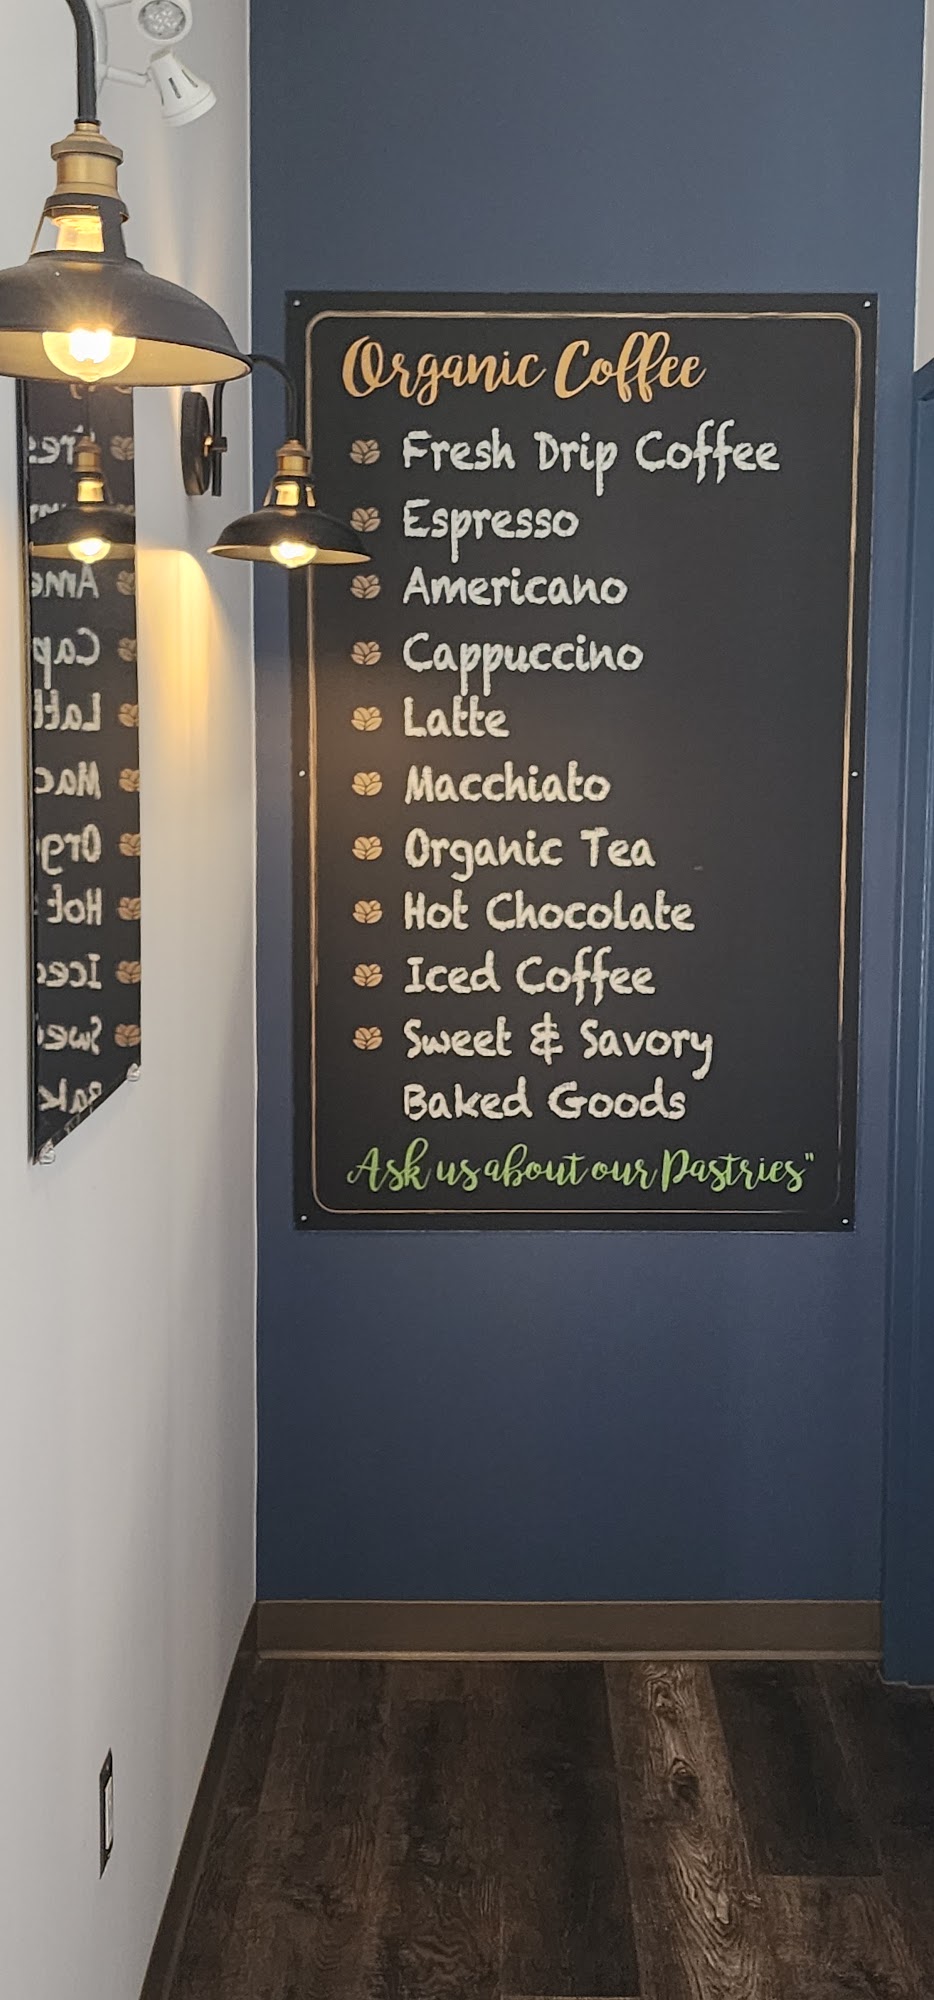 Organic Coffee
Fresh Drip Coffee
Espresso
Americano
Cappuccino
Latte
Macchiato
Organic Tea
Hot Chocolate
Iced Coffee
Sweet & Savory
Baked Goods
Ask us about our Pastries"